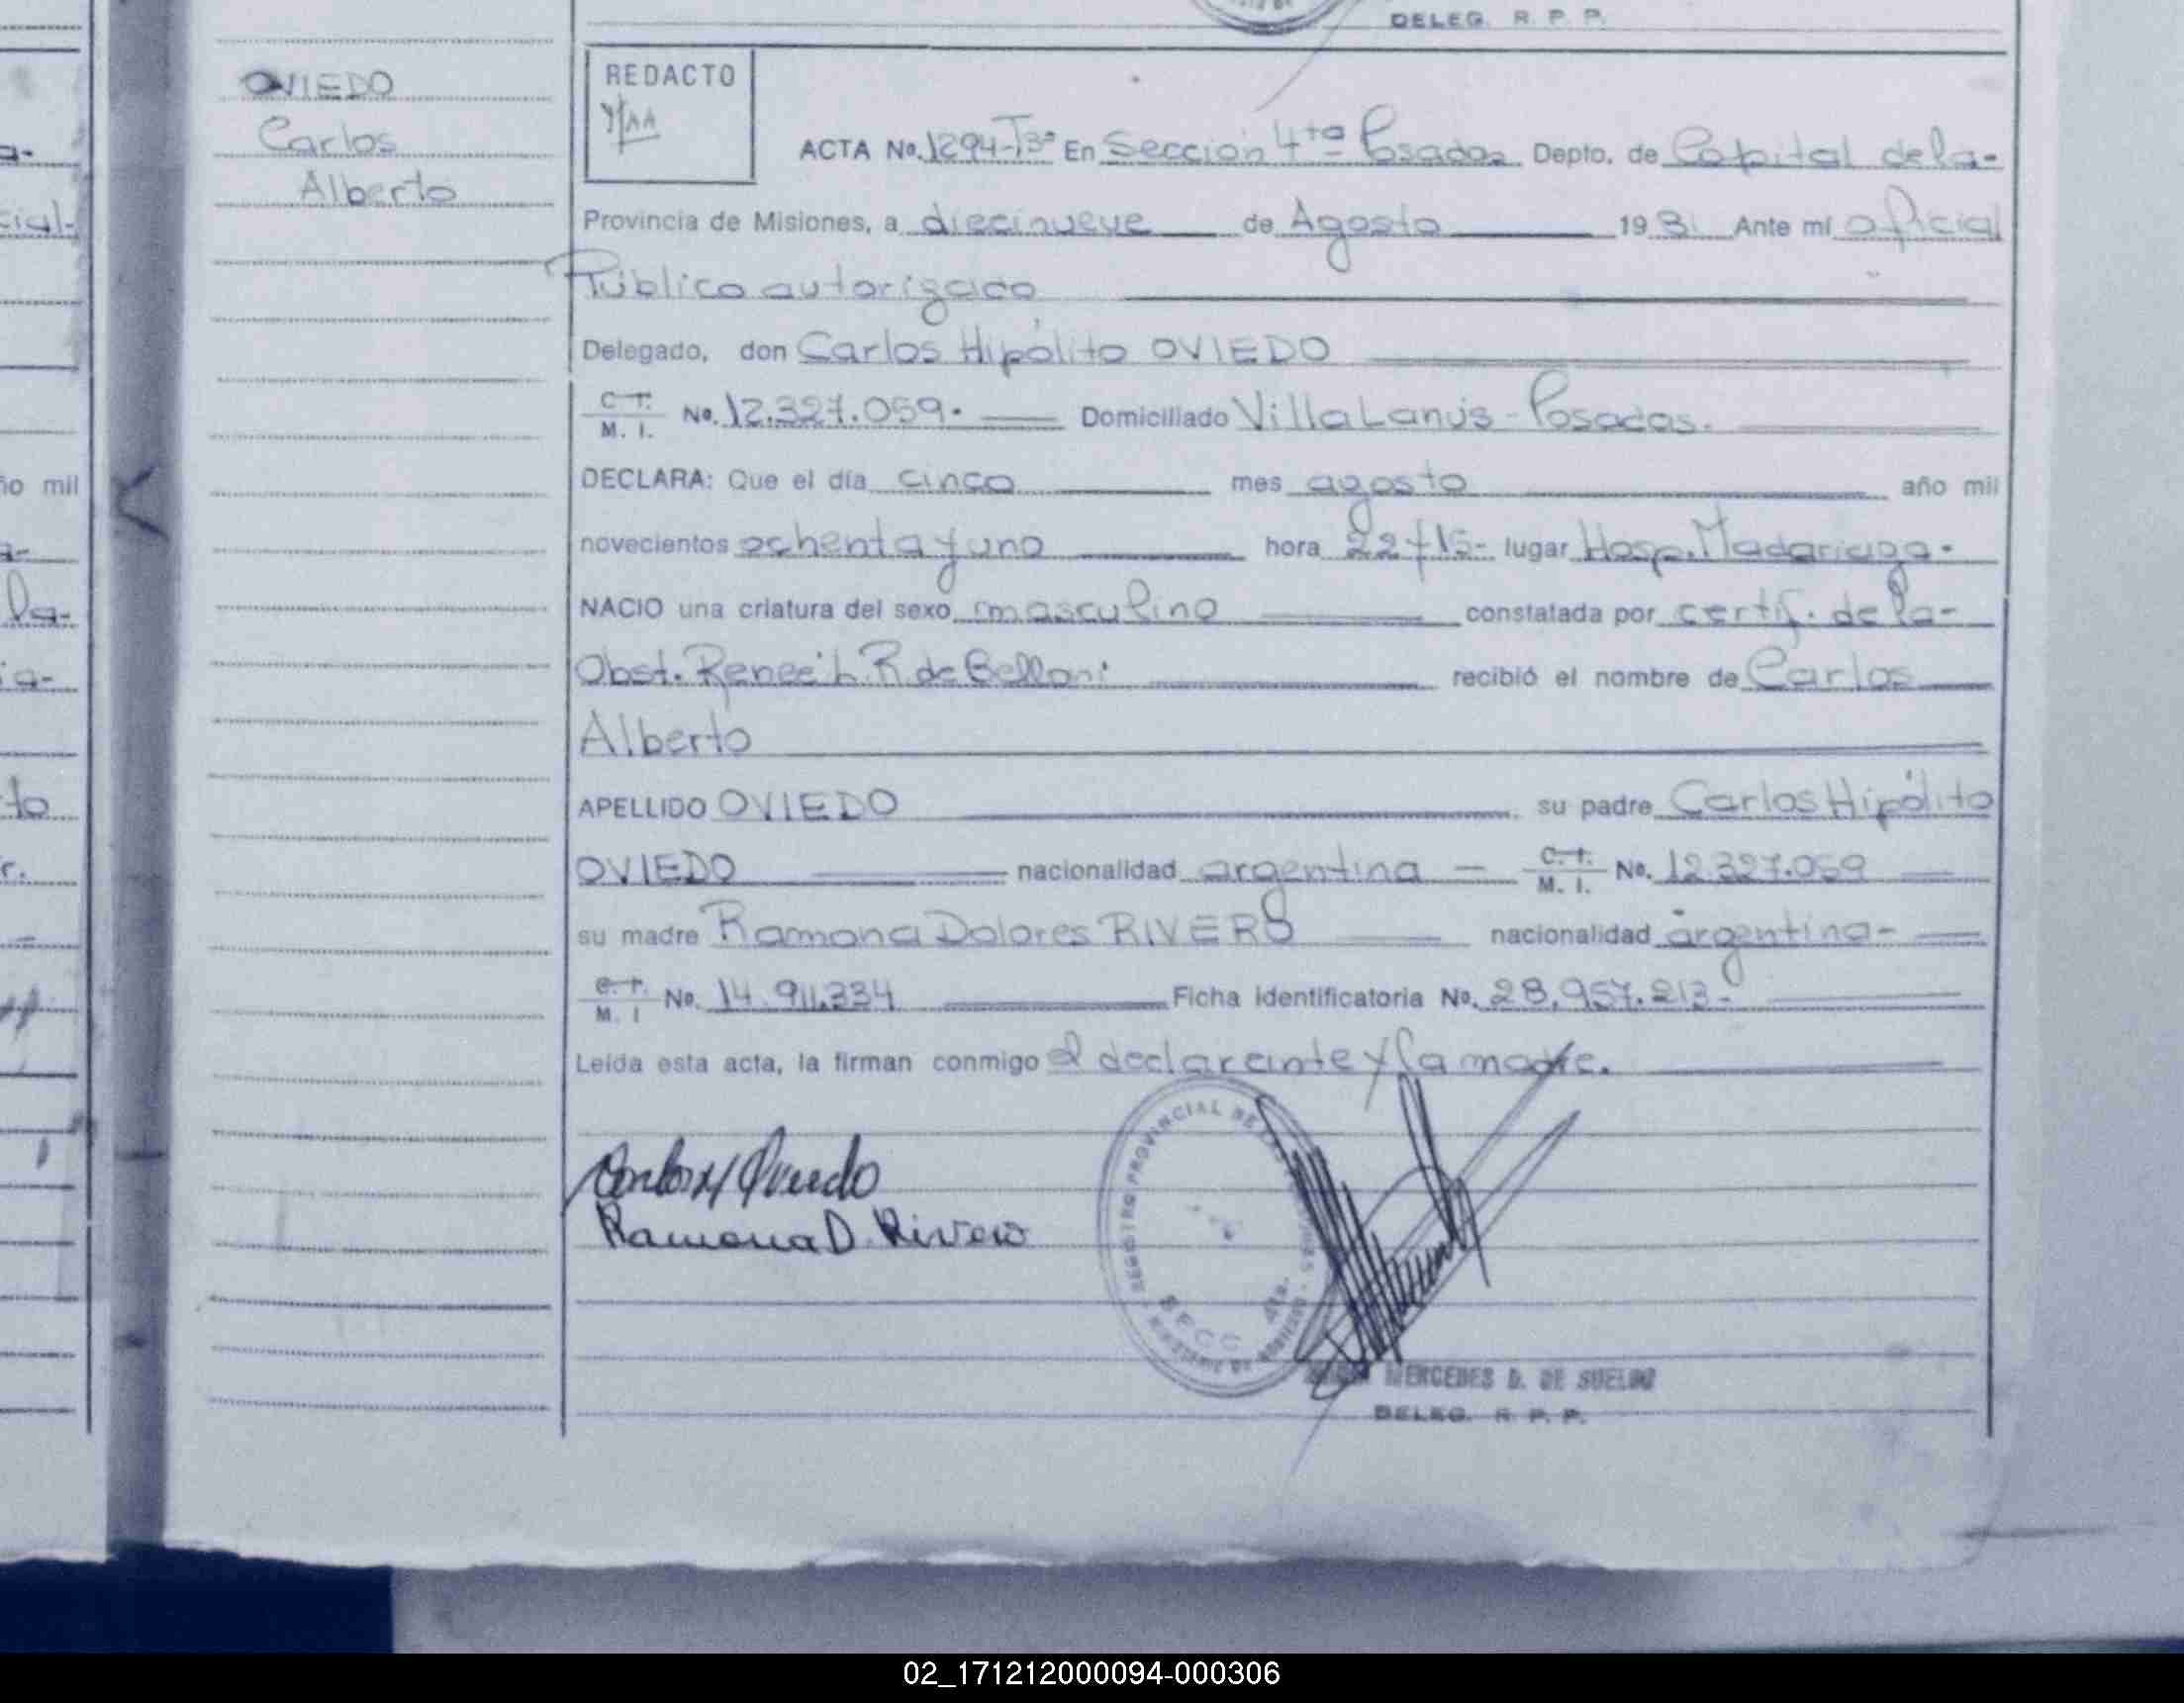 DELEG. R. P. P.
OVIEDO
Carlos
Alberto
REDACTO
ACTA No. 1294-T3º En Sección 4ta Posadas Depto. de Capital de la-
Provincia de Misiones, a diecinueve de Agosto 1981 Ante mí oficial
Público autorizado
Delegado, don Carlos Hipólito OVIEDO
C. I. M. I. No. 12.327.059. Domiciliado Villa Lanús - Posadas.
DECLARA: Que el día cinco mes agosto año mil
novecientos ochenta y uno hora 22 y 15- lugar Hosp. Madariaga.
NACIO una criatura del sexo masculino constatada por certif. de la-
Obst. Reneé L. R de Belloni recibió el nombre de Carlos
Alberto
APELLIDO OVIEDO su padre Carlos Hipólito
OVIEDO nacionalidad argentina — C. I. M. I. No. 12.327.059
su madre Ramona Dolores RIVERO nacionalidad argentina-
C. I. M. I No. 14.911.334 Ficha identificatoria No. 28.957.213.-
Leída esta acta, la firman conmigo el declarante y la madre.
Carlos H Oviedo
Ramona D. Rivero
REGISTRO PROVINCIAL DE LAS
SECC 4ta.
MERCEDES D. DE SUELDO
DELEG. R. P. P.
ño mil
02_171212000094-000306